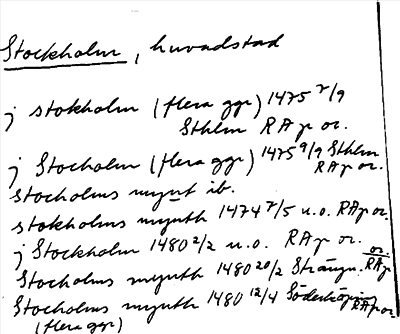 Stockholm, huvudstad
j stokholm (flera ggr) 1475 7/9
Sthlm RAp or.
j Stocholm (flera ggr) 1475 9/9 Sthlm
RAp or.
Stocholms mynt ib.
stokholms mynth 1474 7/5 u.o. RAp or.
j Stockholm 1480 2/2 u.o. RAp or.
Stocholms mynth 1480 20/2 Strängn. RAp or.
Stocholms mynth 1480 12/4 Söderköping RAp or
(flera ggr)